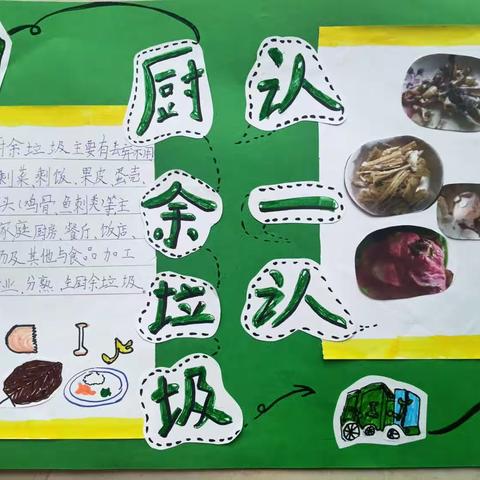 认一认
厨余垃圾
厨余垃圾主要有丢弃不用
剩菜、剩饭、果皮、蛋壳
头(鸡骨、鱼刺类)等主
家庭厨房、餐厅、饭店、
场及其他与食品加工
业、分熟、生厨余垃圾、